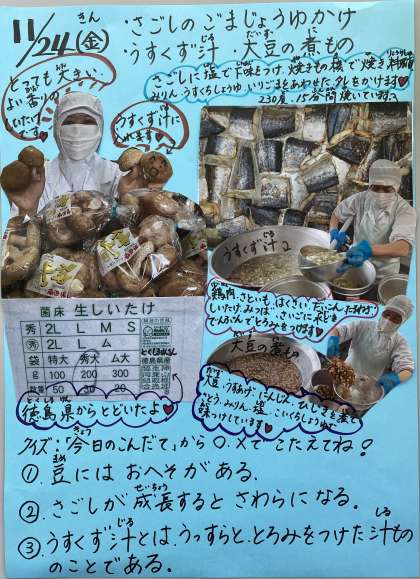 11/24(金)
・さごしのごまじょうゆかけ
・うすくず汁 ・大豆の煮もの
とっても大きい
よい香りの
しいたけ
です♥
うすくず汁に
さごしに塩で下味をつけ、焼きもの機で焼き、料理酒
みりん、うすくちしょうゆ、いりごまをあわせたタレをかけます♥
230度、15分間焼いています。
うすくず汁
鶏肉、さといも、はくさい、だいこん、たまねぎ
しいたけ、みつば、さいごに水どき
でんぷんでとろみをつけます♥
大豆の煮もの
大豆、うすあげ、にんじん、ひじきを煮て
さとう、みりん、塩、こいくちしょうゆで
味つけしています♥
菌床 生しいたけ
秀 2L L M S
秀 2L L ム
袋 特大 秀大 ム大
g 100 200 300
数量 50 30 20
徳島県産
徳島県からとどいたよ♥
クイズ:「今日のこんだて」から○、×でこたえてね!
①.豆にはおへそがある。
②.さごしが成長するとさわらになる。
③.うすくず汁とは、うっすらと、とろみをつけた汁もの
のことである。